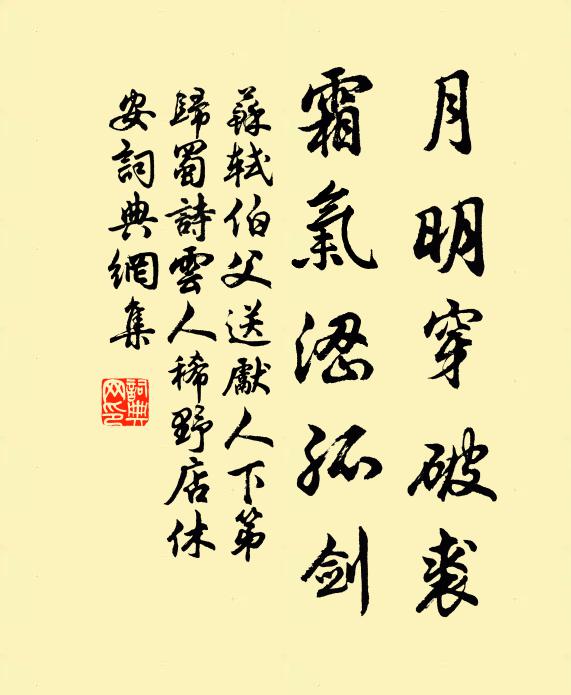 月明穿破裘
霜氣澀孤劍
蘇軾伯父送獻人下第
歸蜀詩雲人稀野店休
安詞典網集
詞典网印